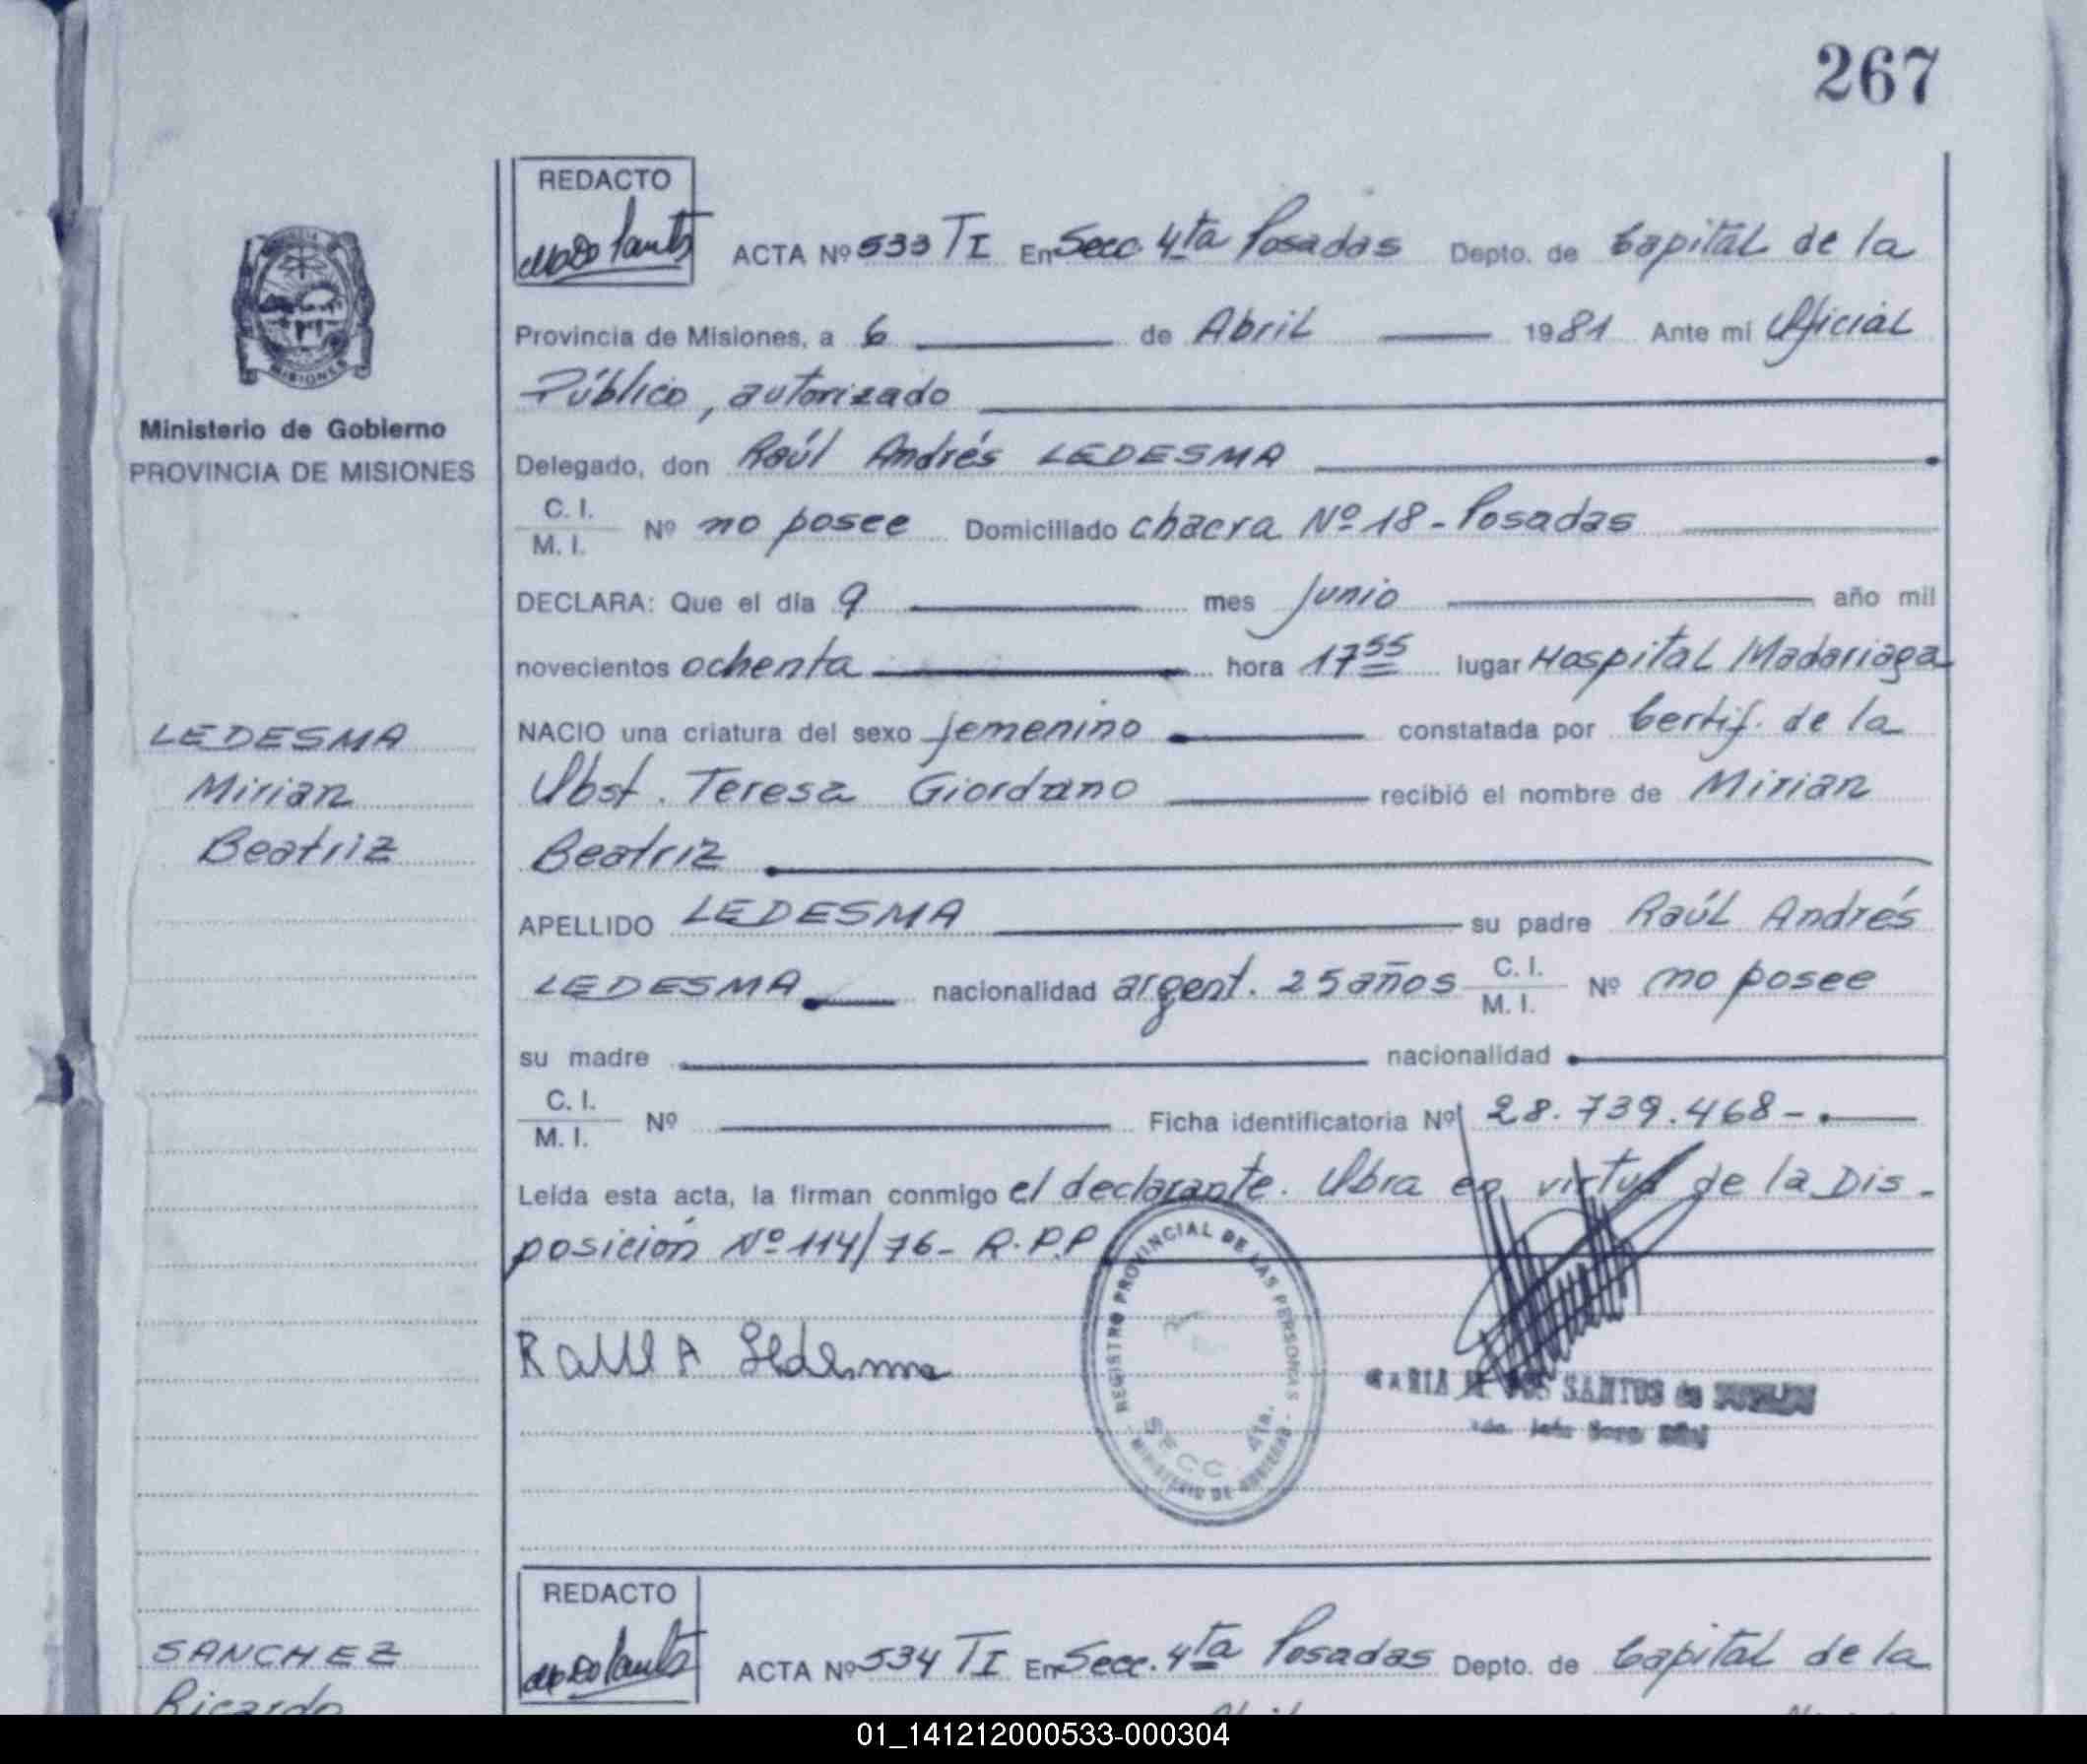 267
REDACTO
ACTA Nº 533 TI En Secc. 4ta Posadas Depto. de Capital de la
Provincia de Misiones, a 6 de Abril 1981 Ante mí Oficial
Público, autorizado
Ministerio de Gobierno
PROVINCIA DE MISIONES
Delegado, don Raúl Andrés LEDESMA
C. I.
M. I. Nº no posee Domiciliado chacra Nº 18 - Posadas
DECLARA: Que el día 9 mes Junio año mil
novecientos ochenta hora 17 55 lugar Hospital Madariaga
LEDESMA
Mirian
Beatriz
NACIO una criatura del sexo femenino constatada por Certif. de la
Obst. Teresa Giordano recibió el nombre de Mirian
Beatriz
APELLIDO LEDESMA su padre Raúl Andrés
LEDESMA nacionalidad argent. 25 años C. I. M. I. Nº no posee
su madre nacionalidad
C. I.
M. I. Nº Ficha identificatoria Nº 28.739.468-
Leída esta acta, la firman conmigo el declarante. Obra en virtud de la Dis-
posición Nº 114/76- R.P.P
Raul A Ledesma
REGISTRO PROVINCIAL DE LAS PERSONAS
SECC. 4ta.
MINISTERIO DE GOBIERNO
MARIA DOS SANTOS de
SANCHEZ
Ricardo
REDACTO
ACTA Nº 534 TI En Secc. 4ta Posadas Depto. de Capital de la
01_141212000533-000304